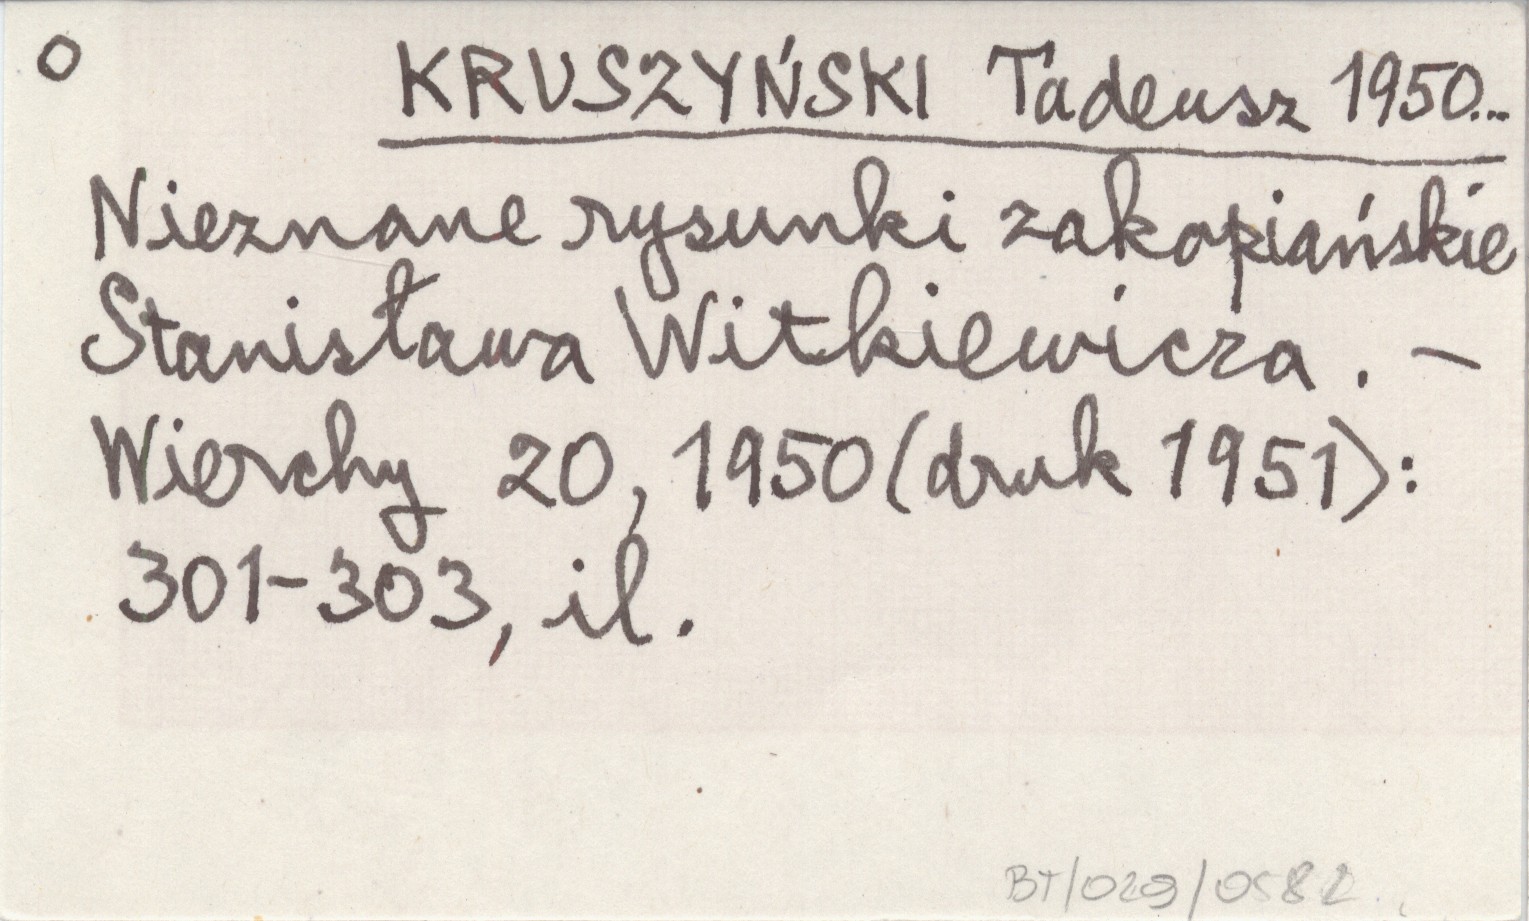 O
KRUSZYŃSKI Tadeusz 1950...
Nieznane rysunki zakopiańskie
Stanisława Witkiewicza. –
Wierchy 20, 1950 (druk 1951):
301-303, il.
BT/029/0582